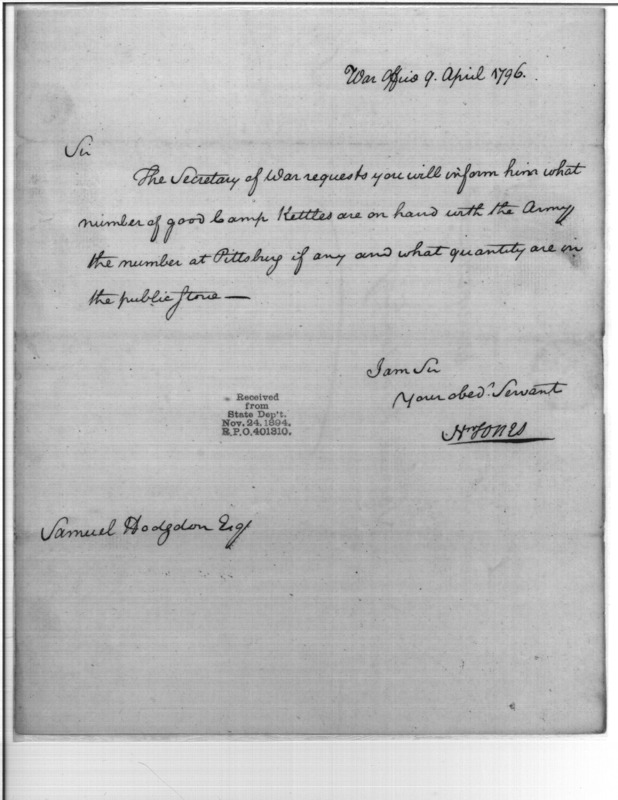 War Office 9. April 1796.
Sir
The Secretary of War requests you will inform him what
number of good Camp Kettles are on hand with the Army
the number at Pittsburg if any and what quantity are in
the public Store —
I am Sir
Your obedt. Servant
Jones
Received
from
State Dep't.
Nov. 24, 1894.
R.P.O. 401310.
Samuel Hodgdon Esqr